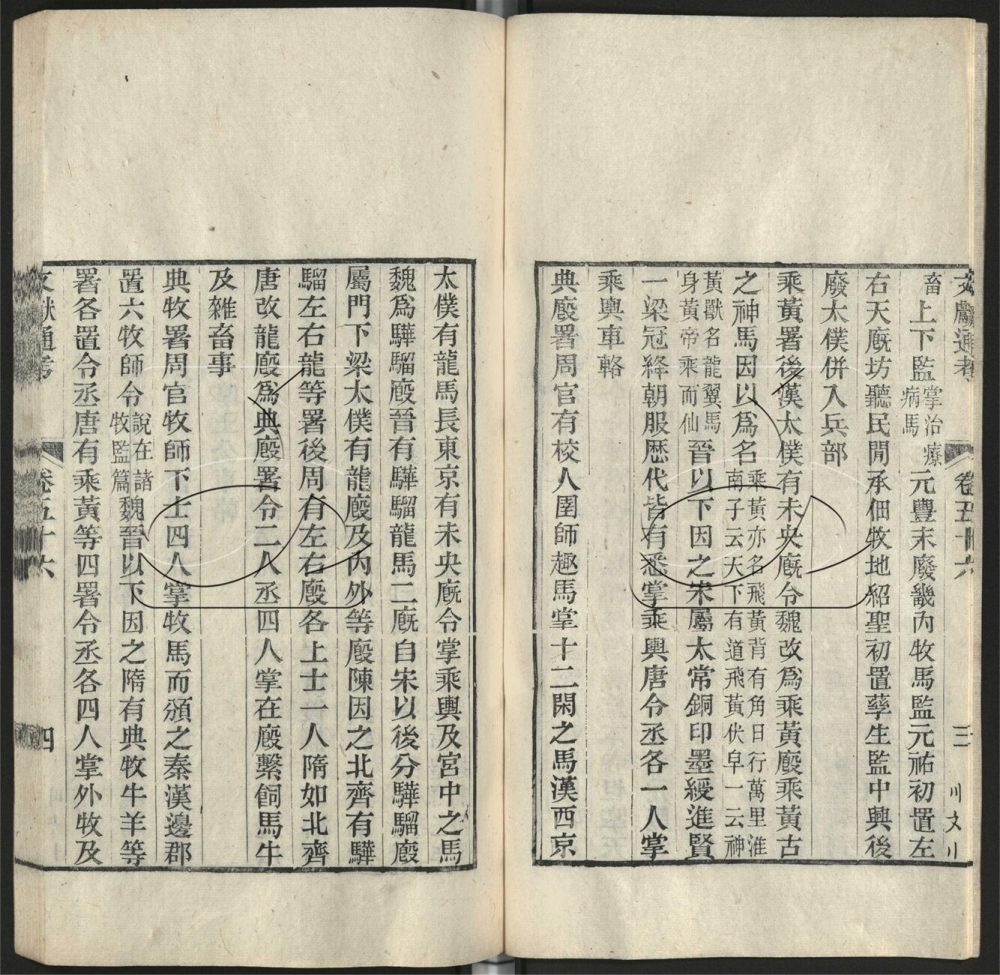 文獻通考 卷五十六 三
畜上下監掌治療病馬元豐末廢畿內牧馬監元祐初置左
右天廐坊聽民間承佃牧地紹聖初置孳生監中興後
廢太僕併入兵部
乘黃署後漢太僕有未央廐令魏改爲乘黃廐乘黃古
之神馬因以爲名乘黃亦名飛黃背有角日行萬里淮南子云天下有道飛黃伏皁一云神
黃獸名龍翼馬身黃帝乘而仙晉以下因之宋屬太常銅印墨綬進賢
一梁冠絳朝服歷代皆有悉掌乘輿唐令丞各一人掌
乘輿車輅
典廐署周官有校人圉師趣馬掌十二閑之馬漢西京
太僕有龍馬長東京有未央廐令掌乘輿及宮中之馬
魏爲驊騮廐晉有驊騮龍馬二廐自宋以後分驊騮廐
屬門下梁太僕有龍廐及內外等廐陳因之北齊有驊
騮左右龍等署後周有左右廐各上士一人隋如北齊
唐改龍廐爲典廐署令二人丞四人掌在廐繫飼馬牛
及雜畜事
典牧署周官牧師下士四人掌牧馬而頒之秦漢邊郡
置六牧師令說在諸牧監篇魏晉以下因之隋有典牧牛羊等
署各置令丞唐有乘黃等四署令丞各四人掌外牧及
文獻通考 卷五十六 四